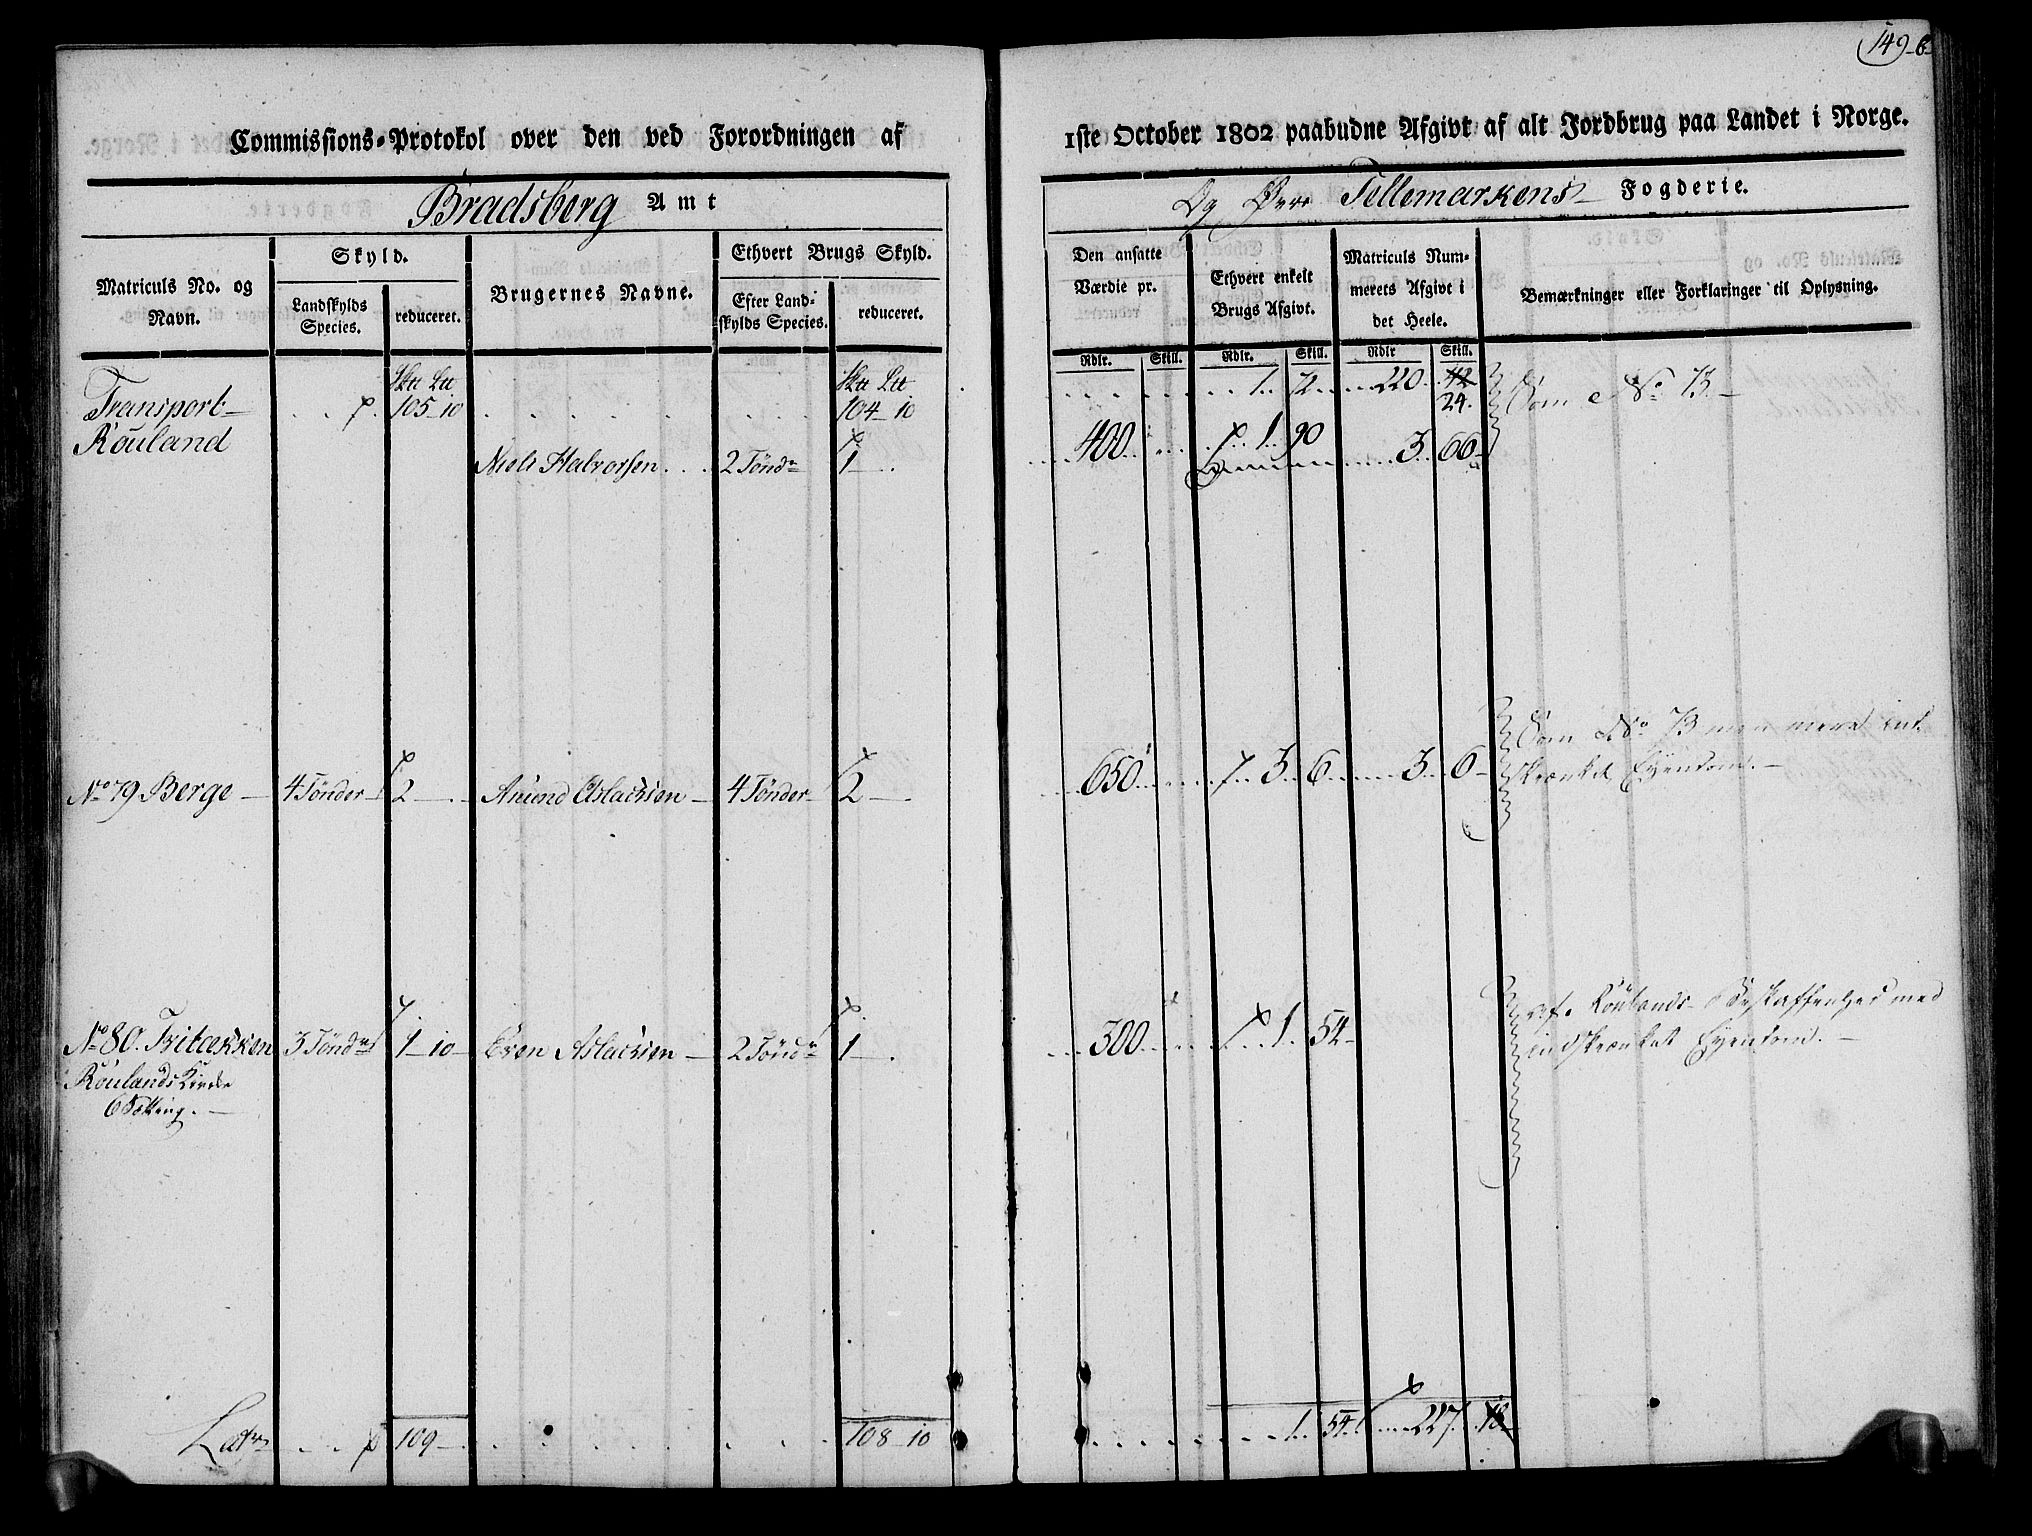 149 b
Commissions-Protokol over den ved Forordningen af
1ste October 1802 paabudne Afgivt af alt Jordbrug paa Landet i Norge.
Bradsberg Amt
Og Øvre Tellemarkens Fogderie.
Matriculs No. og Navn.
Skyld.
Landskylds Species.
reduceret.
Brugernes Navne.
Ethvert Brugs Skyld.
Efter Landskylds Species.
reduceret.
Den ansatte Værdie pr.
Ethvert enkelt Brugs Afgivt.
Matriculs Nummerets Afgivt i det Heele.
Bemærkninger eller Forklaringer til Oplysning.
Rdlr. Skill. Rdlr. Skill. Rdlr Skill.
Transport 105 - 10 104 - 10 1 72 220 42
24. Som No 73.
Rouland Niels Halvorsen 2 Tønd 1 400 1 90
3 66
No 79 Berge 4 Tønder 2 Amund Aslacksen 4 Tønder 2 650 3 6 3 6
Som No 73 men mere ind
skrænket Eyendom.
No 80. 3 Tønd 1 - 10 Even Aslacksen 2 Tønd 1 300 1 54
Roulands Beskaffenhed med
indskrænket Eyendom.
Roulands Kirke
6 Setting.
Lat 109 108 - 10 1 54 227 18